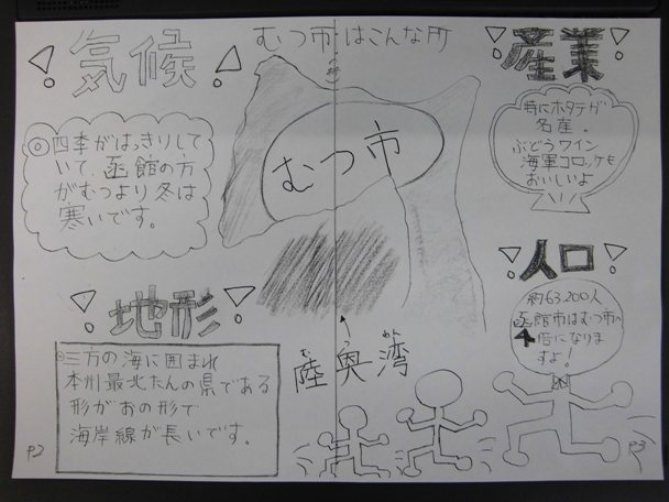 むつ市はこんな所
！気候！
◎四季がはっきりして
いて、函館の方
がむつより冬は
寒いです。
！地形！
◎三方の海に囲まれ
本州最北たんの県である
形がおの形で
海岸線が長いです。
P2
むつ市
↑
む つ わん
陸奥湾
！産業！
特にホタテが
名産。
ぶどうワイン
海軍コロッケも
おいしいよ
！人口！
約63200人
函館市はむつ市の
4倍になりま
すよ！
P3